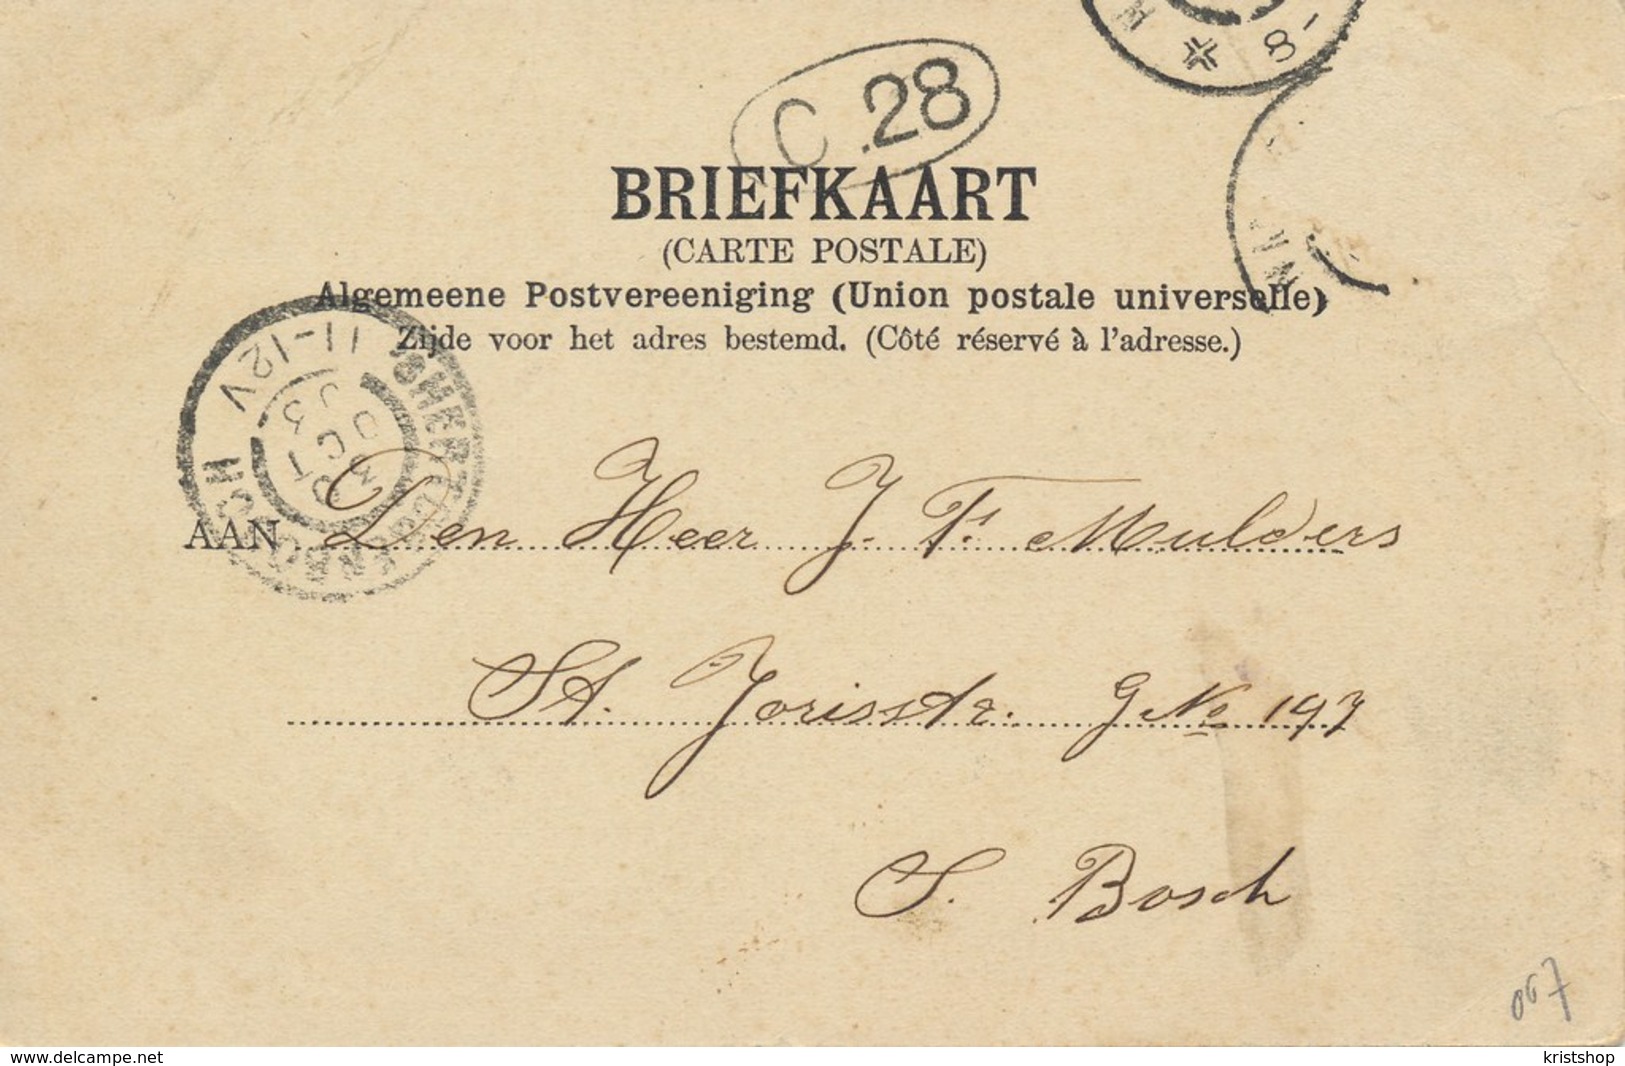 8-
C.28
BRIEFKAART
(CARTE POSTALE)
Algemeene Postvereeniging (Union postale universelle)
Zijde voor het adres bestemd. (Côté réservé à l'adresse.)
'SHERTOGENBOSCH
11-12V
AAN Den Heer J. F. Mulders
St. Jorisstr. G No 197
S. Bosch
067
www.delcampe.net
kristshop